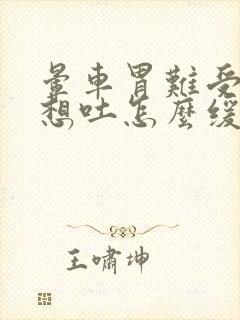 暈車胃難受
想吐怎麼緩
王嘯坤